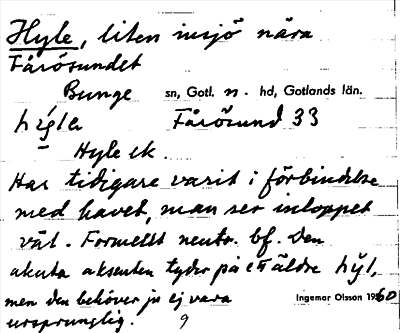 Hyle, liten insjö nära
Fårösundet
Bunge sn, Gotl. n. hd, Gotlands län.
hýla Fårösund 33
Hyle ek.
Har tidigare varit i förbindelse
med havet, man ser inloppet
väl. Formellt neutr. bf. Den
akuta aksenten tyder på ett äldre hýl,
men den behöver ju ej vara
ursprunglig. 9
Ingemar Olsson 1960